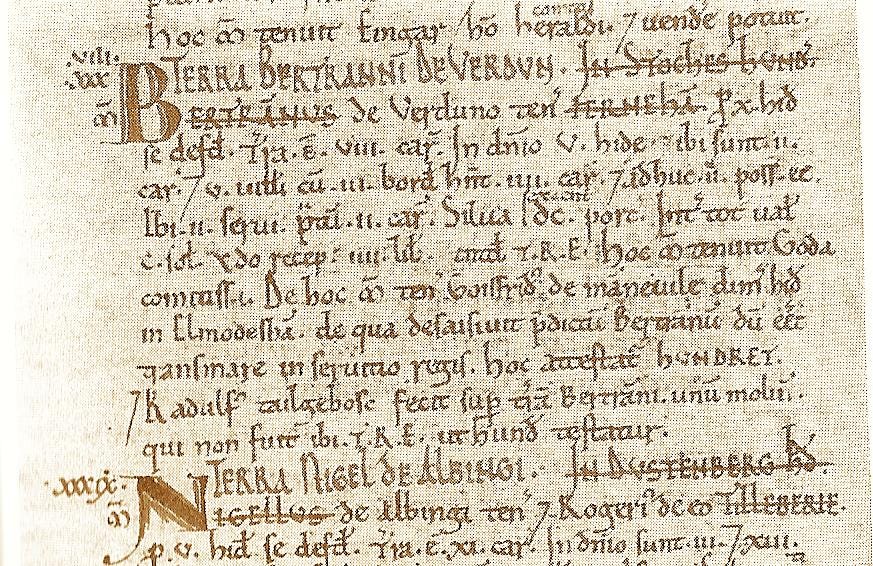 hoc m̄ tenuit Eingar hō heraldi. ⁊ uende potuit.
.VIII.
XXX TERRA BERTRANNI DE VERDUN. IN STOCHES HUND.
m̄ BERTRANUS de Verduno ten' FERNEHĀ p x. hid
se defd'. Tra. ē. VIII. car'. In dn̄io V. hide ⁊ ibi sunt .II.
car'. ⁊ V. uilli cū .III. bord' hn̄t .IIII. car'. ⁊ adhuc .II. poss' ee.
Ibi .II. serui. p̄tū .II. car'. Silua dc. porc'. Int' tot' ual'
c. sol'. Qdo recep' .IIII. lib'. T.R.E. hoc m̄ tenuit Goda
comitissa. De hoc m̄ ten' Goisfrid' de maneuile dim' hid'
in Elmodeshā. de qua desaisiuit p̄dictū Bertranū dū eet
transmare in seruitio regis. hoc attestat' HUNDRET.
⁊ Radulf' tailgebosc fecit sup' trā Bertrani. unū molin'.
qui non fuit ibi. T.R.E. ut hund' testatur.
XXXIX. TERRA NIGEL DE ALBINGI. IN DUSTENBERG HD.
m̄ NIGELLUS de Albingi ten' ⁊ Roger' de eo TILLEBERIE.
p. V. hid' se defd'. Tra. ē. XI. car'. In dn̄io sunt .III. ⁊ XIII.